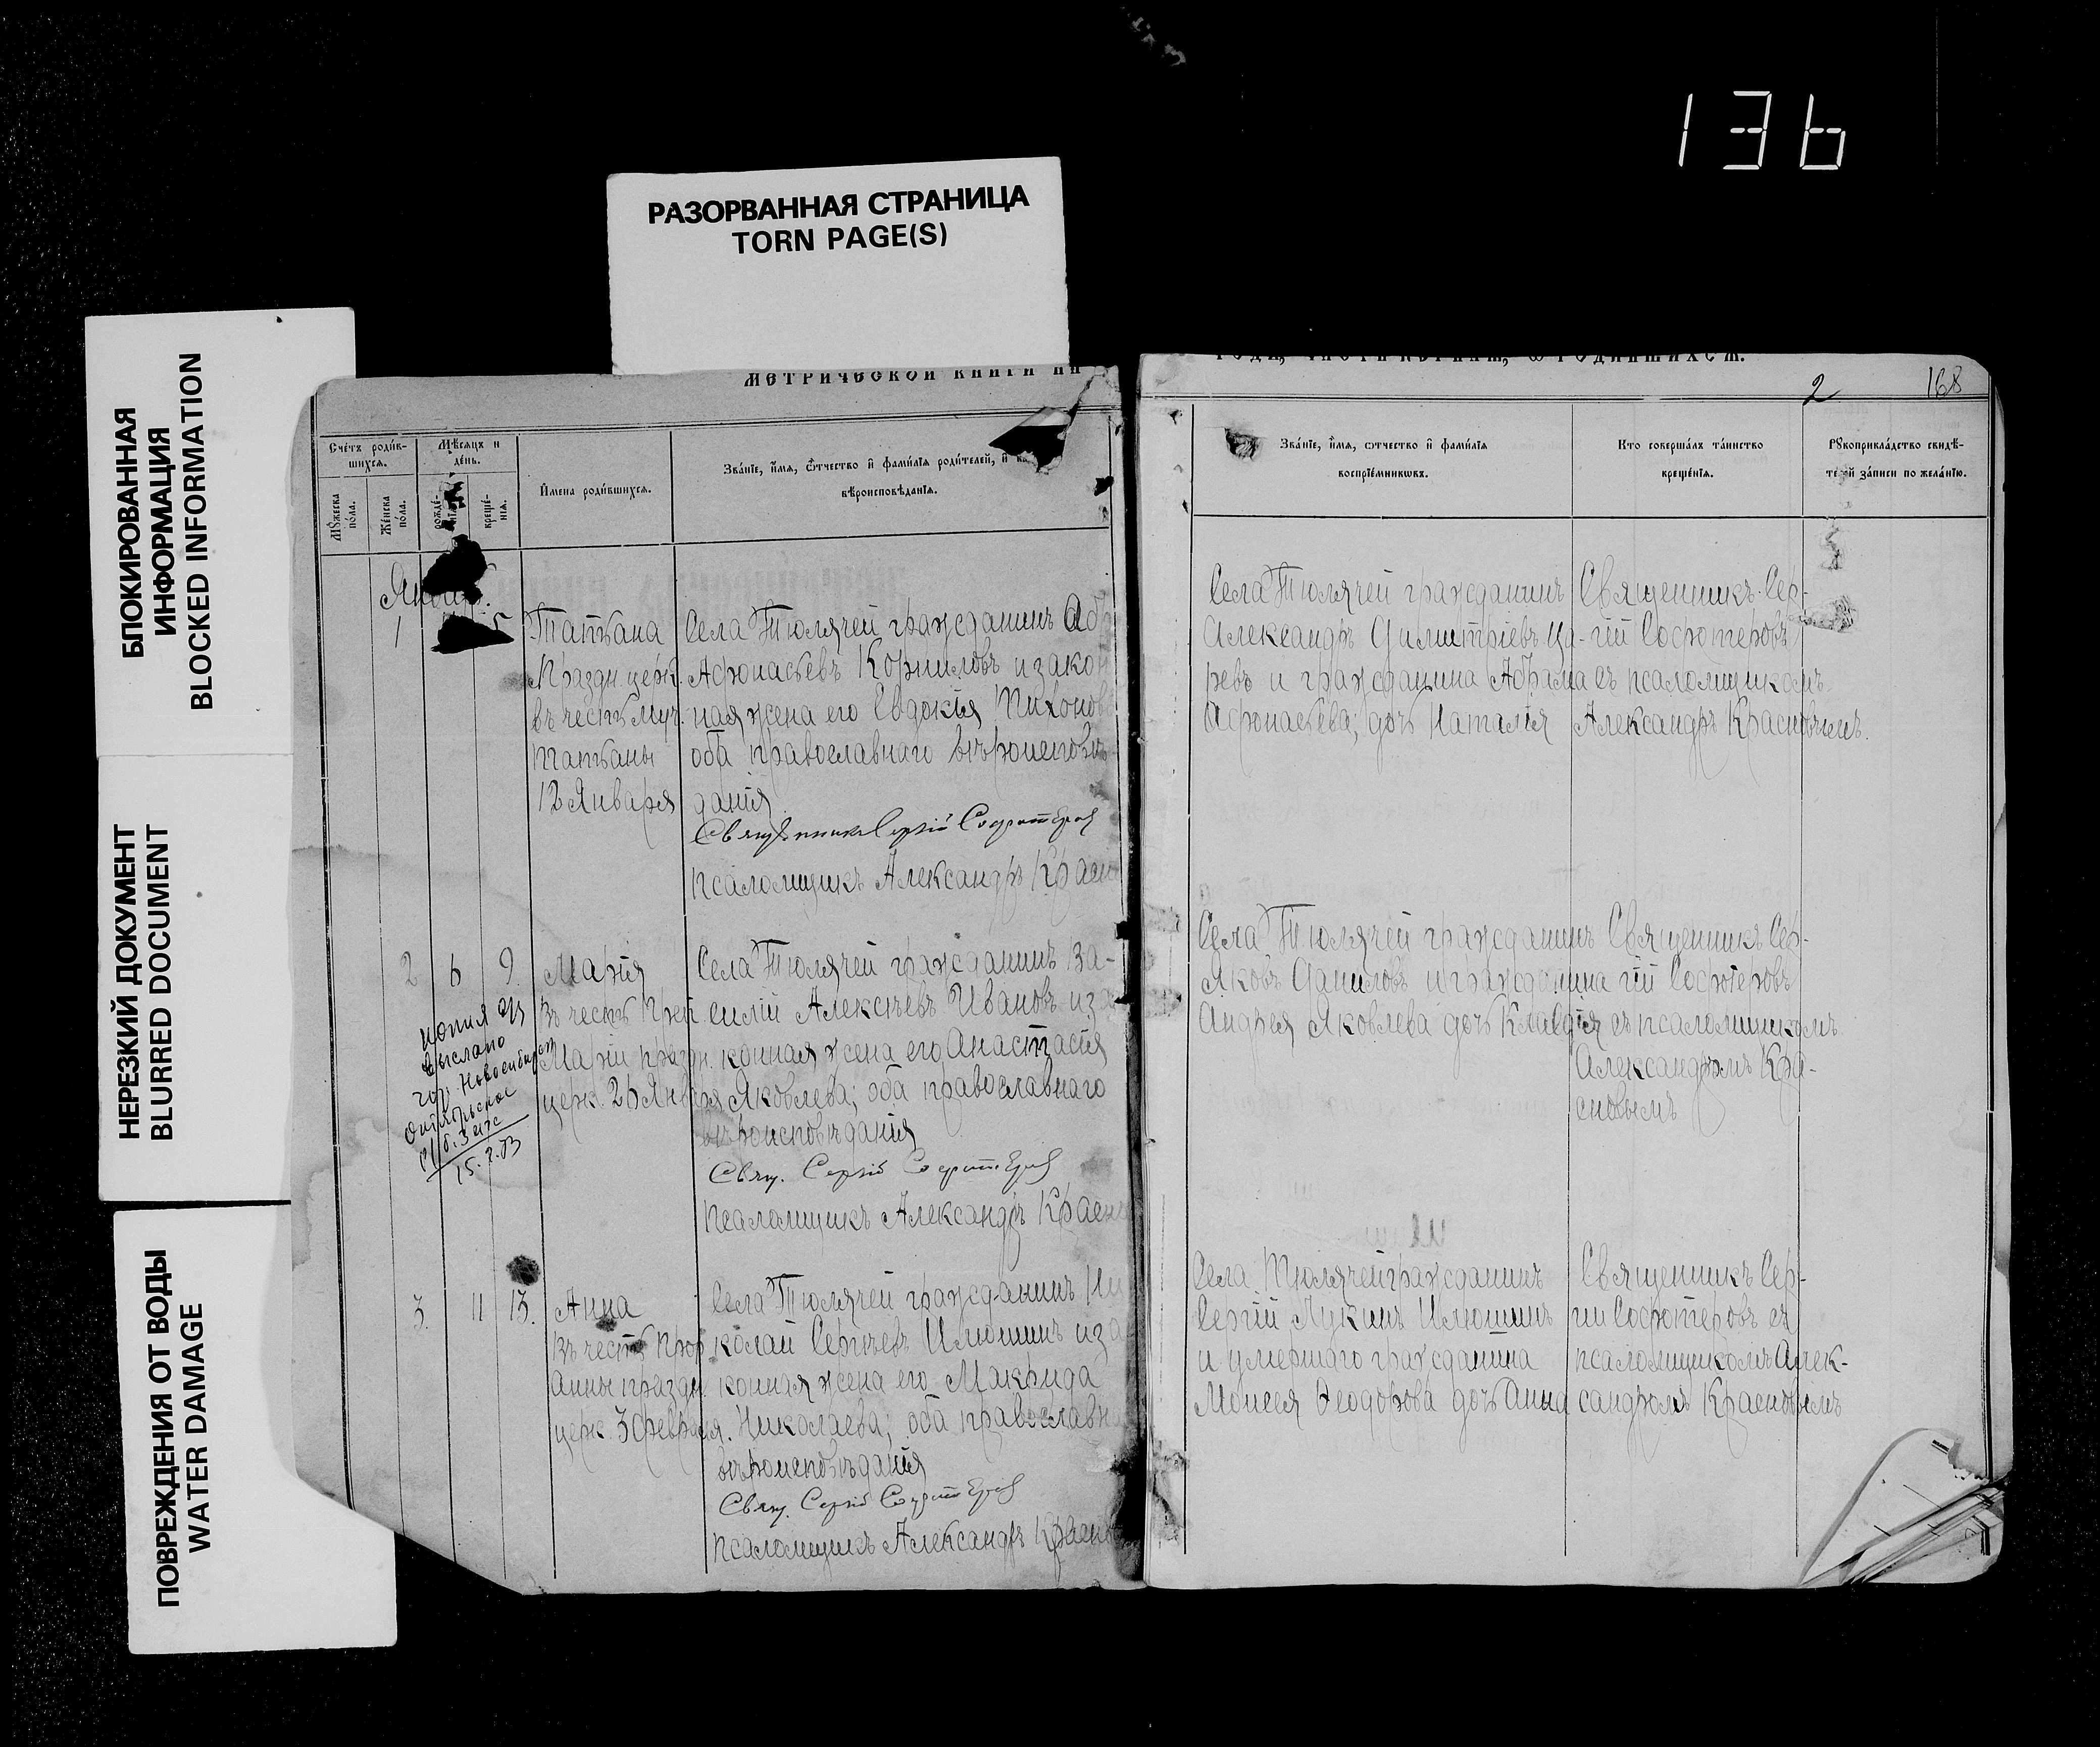 136
РАЗОРВАННАЯ СТРАНИЦА
TORN PAGE(S)
БЛОКИРОВАННАЯ
ИНФОРМАЦИЯ
BLOCKED INFORMATION
НЕРЕЗКИЙ ДОКУМЕНТ
BLURRED DOCUMENT
ПОВРЕЖДЕНИЯ ОТ ВОДЫ
WATER DAMAGE
МЕТРИЧЕСКОЙ КНИГИ НА
Счетъ родив-
шихся.
Мѣсяцъ и
день.
Мужеска
пола.
Женска
пола.
рожде-
креще-
нія.
Имена родившихся.
Званіе, имя, отчество и фамилія родителей, и
вѣроисповѣданія.
1
Татьана
Праздн церк.
въ честь муч.
Татьаны
12 Января
Села Тюлячей гражданинъ
Афонасьевъ Корниловъ и зако
ная жена его Евдокія
оба православнаго вѣроисповѣ-
данія
Сергій Софотеров
псаломщикъ Александръ
2 6 9.
Марія
въ честь
Маріи праздн.
церк. 26 Января
Села Тюлячей гражданинъ Ва-
силій Алексѣевъ Ивановъ и за
конная жена его Анастасія
Яковлева; оба православнаго
вѣроисповѣданія
Свящ. Сергій Софотеров
псаломщикъ Александръ
копия
выслано
гор. Новосибирск
Октябрьское
3.
11 13.
Анна
въ честь Прор
Анны праздн.
церк. 3 Февраля.
Села Тюлячей гражданинъ Ни
колай Сергѣевъ Илюшинъ и за
конная жена его Макрида
Николаева, оба православн
вѣроисповѣданія
Свящ. Сергій Софотеров
псаломщикъ Александръ
2
168
Званіе, имя, отчество и фамилія
воспріемниковъ.
Кто совершалъ таинство
крещенія.
Рукоприкладство свидѣ-
записи по желанію.
Села Тюлячей гражданинъ
Александръ Димитріевъ Ца-
ревъ и гражданина Абрама
Афонасьева, дочь Наталія
Священникъ Сер-
гій Софотеровъ
съ псаломщикомъ
Александръ Красновымъ.
Села Тюлячей гражданинъ
Яковъ Даниловъ и гражданина
Андрея Яковлева дочь Клавдія
Священникъ Сер-
гій Софотеровъ
съ псаломщикомъ
Александромъ Кра-
сновымъ
Села Тюлячей гражданинъ
Сергій Лукинъ Илюшинъ
и умершаго гражданина
Моисея Ѳеодорова дочь Анна
Священникъ Сер-
гій Софотеровъ съ
псаломщикомъ Алек-
сандромъ Красновымъ